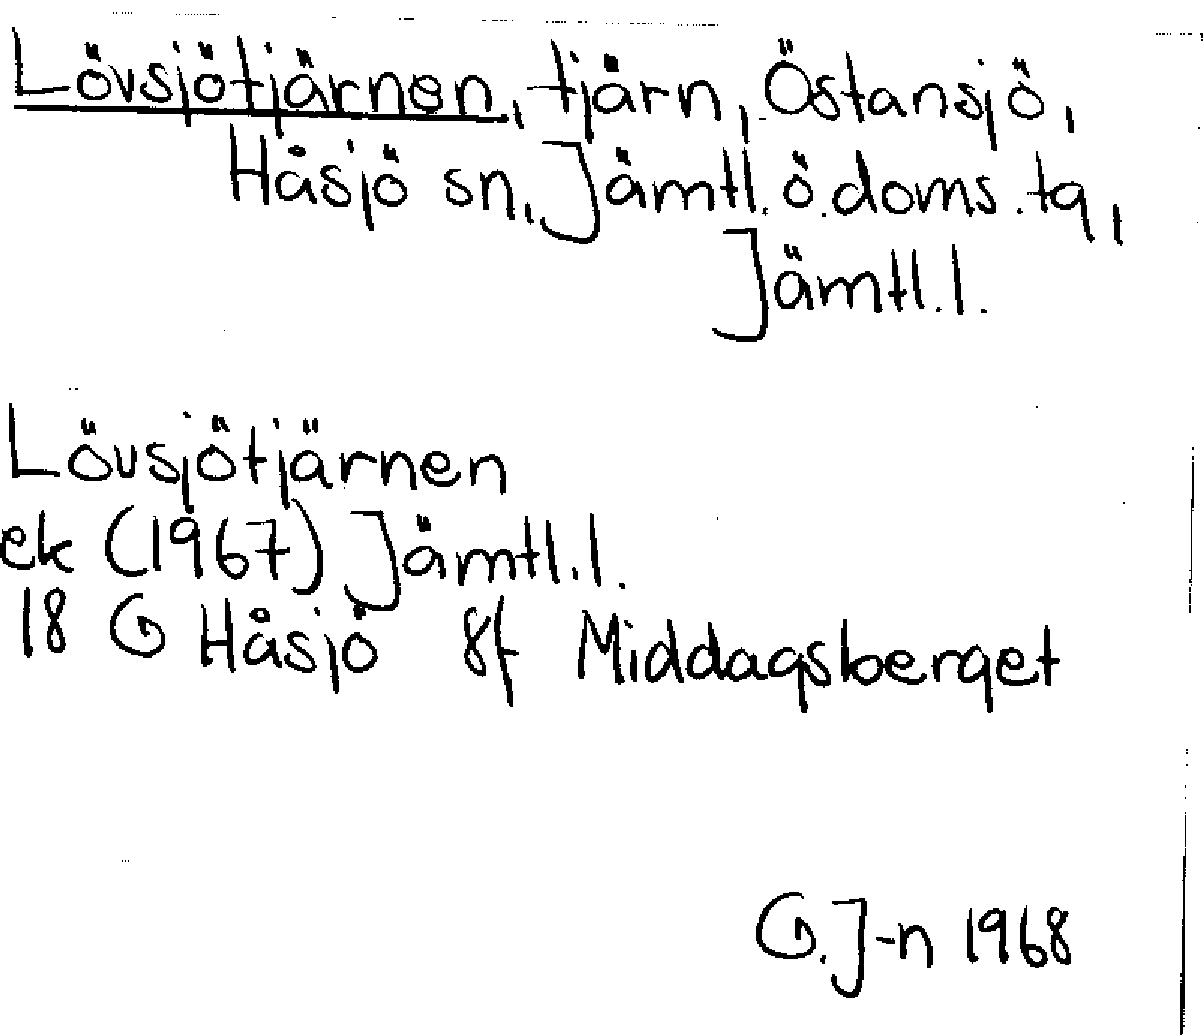 Lövsjötjärnen, tjärn, Östansjö,
Håsjö sn, Jämtl. ö. doms. tg,
Jämtl. l.
Lövsjötjärnen
ek (1967) Jämtl. l.
18 G Håsjö 8f Middagsberget
G. J-n 1968